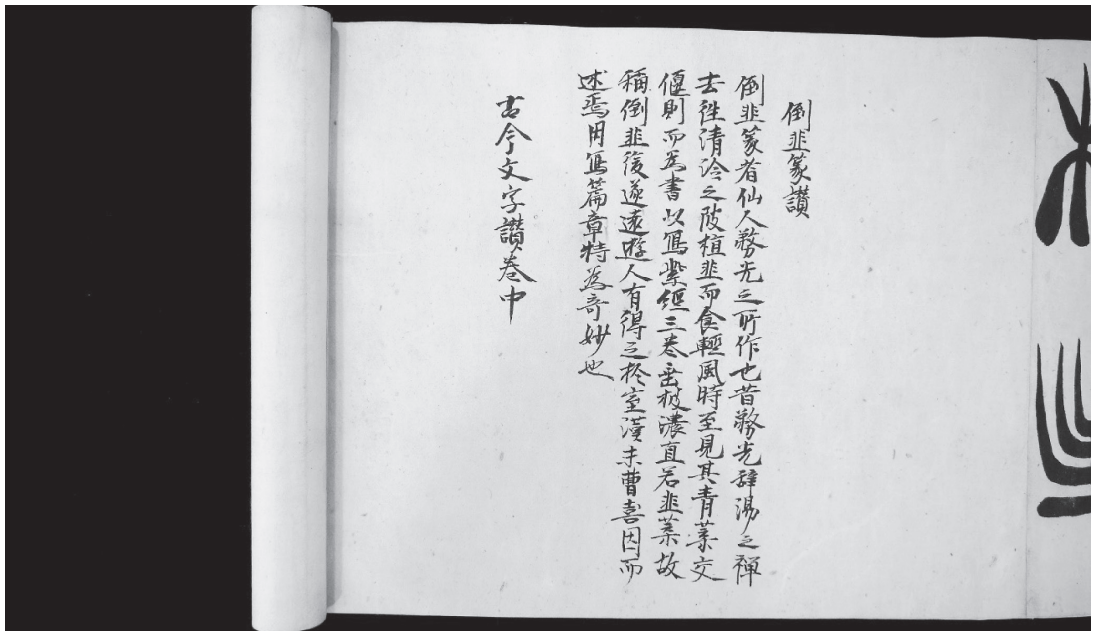 倒韭篆讃
倒韭篆者仙人務光之所作也昔務光辞湯之禅
去往清泠之陂植韭而食輕風時至見其青葉交
偃則而為書以寫紫經三卷垂枝濃直若韭葉故
稱倒韭後遂遠遊人有得之於室漢末曹喜因而
述焉用寫篇章特為奇妙也
古今文字讃卷中